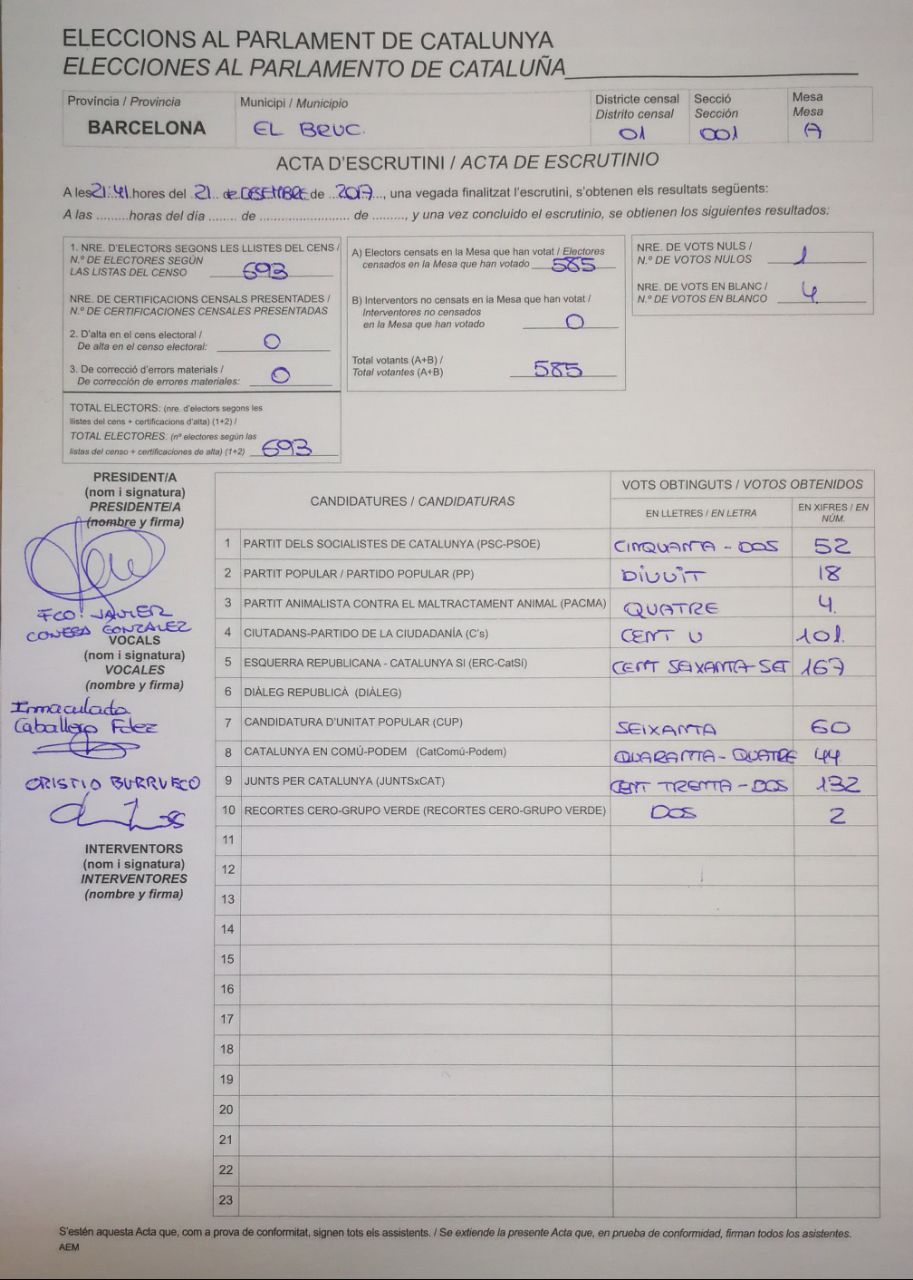 ELECCIONS AL PARLAMENT DE CATALUNYA
ELECCIONES AL PARLAMENTO DE CATALUÑA
Província / Provincia
BARCELONA
Municipi / Municipio
EL BRUC.
Districte censal
Distrito censal
01
Secció
Sección
001
Mesa
Mesa
A
ACTA D'ESCRUTINI / ACTA DE ESCRUTINIO
A les 21:41 hores del 21 de DESEMBRE de 2017, una vegada finalitzat l'escrutini, s'obtenen els resultats següents:
A las .........horas del día ....... de ...................... de ........., y una vez concluido el escrutinio, se obtienen los siguientes resultados:
1. NRE. D'ELECTORS SEGONS LES LLISTES DEL CENS /
N.º DE ELECTORES SEGÚN
LAS LISTAS DEL CENSO 693
NRE. DE CERTIFICACIONS CENSALS PRESENTADES /
N.º DE CERTIFICACIONES CENSALES PRESENTADAS
2. D'alta en el cens electoral /
De alta en el censo electoral: 0
3. De correcció d'errors materials /
De corrección de errores materiales: 0
TOTAL ELECTORS: (nre. d'electors segons les
llistes del cens + certificacions d'alta) (1+2) /
TOTAL ELECTORES: (nº electores según las
listas del censo + certificaciones de alta) (1+2) 693
A) Electors censats en la Mesa que han votat / Electores
censados en la Mesa que han votado 585
B) Interventors no censats en la Mesa que han votat /
Interventores no censados
en la Mesa que han votado 0
Total votants (A+B) /
Total votantes (A+B) 585
NRE. DE VOTS NULS /
N.º DE VOTOS NULOS 1
NRE. DE VOTS EN BLANC /
N.º DE VOTOS EN BLANCO 4
PRESIDENT/A
(nom i signatura)
PRESIDENTE/A
(nombre y firma)
FCO. JAVIER
CONESA GONZALEZ
VOCALS
(nom i signatura)
VOCALES
(nombre y firma)
Inmaculada
Caballero Fdez
CRISTIO BURRUECO
INTERVENTORS
(nom i signatura)
INTERVENTORES
(nombre y firma)
CANDIDATURES / CANDIDATURAS
VOTS OBTINGUTS / VOTOS OBTENIDOS
EN LLETRES / EN LETRA
EN XIFRES / EN
NÚM.
1 PARTIT DELS SOCIALISTES DE CATALUNYA (PSC-PSOE) CINQUANTA - DOS 52
2 PARTIT POPULAR / PARTIDO POPULAR (PP) DIVUIT 18
3 PARTIT ANIMALISTA CONTRA EL MALTRACTAMENT ANIMAL (PACMA) QUATRE 4.
4 CIUTADANS-PARTIDO DE LA CIUDADANÍA (C's) CENT U 101.
5 ESQUERRA REPUBLICANA - CATALUNYA SI (ERC-CatSí) CENT SEIXANTA-SET 167
6 DIÀLEG REPUBLICÀ (DIÀLEG)
7 CANDIDATURA D'UNITAT POPULAR (CUP) SEIXANTA 60
8 CATALUNYA EN COMÚ-PODEM (CatComú-Podem) QUARANTA - QUATRE 44
9 JUNTS PER CATALUNYA (JUNTSxCAT) CENT TRENTA - DOS 132
10 RECORTES CERO-GRUPO VERDE (RECORTES CERO-GRUPO VERDE) DOS 2
11
12
13
14
15
16
17
18
19
20
21
22
23
S'estén aquesta Acta que, com a prova de conformitat, signen tots els assistents. / Se extiende la presente Acta que, en prueba de conformidad, firman todos los asistentes.
AEM